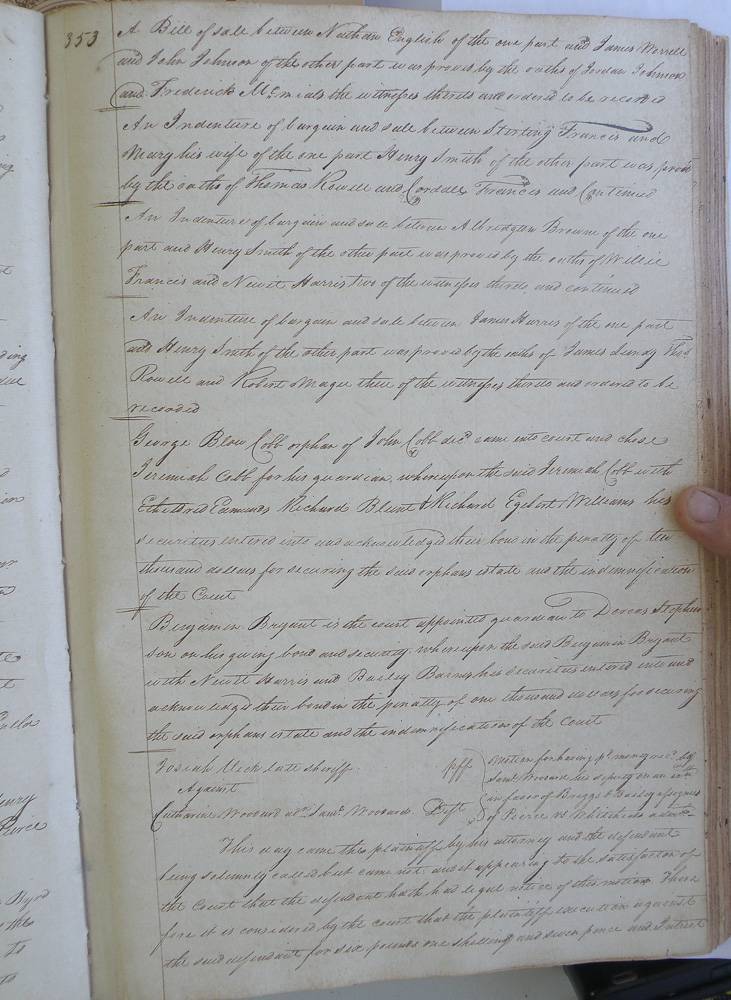 353
A Bill of sale between Nathan English of the one part and James Worrell
and John Johnson of the other part was proved by the oaths of Jordan Johnson
and Frederick the witnesses thereto and ordered to be recorded
An Indenture of bargain and sale between Sterling Francis and
Mary his wife of the one part Henry Smith of the other part was proved
by the oaths of Thomas Rowell and Cordall Francis and Continued
An Indenture of bargain and sale between Albridgton Browne of the one
part and Henry Smith of the other part was proved by the oaths of Willie
Francis and Newit Harris two of the witnesses thereto and continued
An Indenture of bargain and sale between James Harris of the one part
and Henry Smith of the other part was proved by the oaths of James Lundy Thos
Rowell and Robert Magee three of the witnesses thereto and ordered to be
recorded
George Blow Cobb orphan of John Cobb decd came into court and chose
Jeremiah Cobb for his guardian, whereupon the said Jeremiah Cobb with
Etheldred Edmunds Richard Blunt & Richard Egebert Williams his
securities entered into and acknowledged their bond in the penalty of ten
thousand dollars for securing the said orphans estate and the indemnification
of the Court
Benjamin Bryant is the court appointed guardian to Dorcas Stephen
son on his giving bond and security, whereupon the said Benjamin Bryant
with Newit Harris and Bailey Barnes his securities entered into and
acknowledged their bond in the penalty of one thousand dollars for securing
the said orphans estate and the indemnification of the Court
Josiah Vick late sheriff plff
Motion for having pd money recd by
Against
Saml Woodard his deputy on an exn
in favor of Briggs & Bailey assignees
Catharine Woodard adx Saml Woodard Deft
of Pierce vs Whitehead admr
This day came the plaintiff by his attorney and the defendant
being solemnly called but came not and it appearing to the satisfaction of
the Court that the defendant hath had legal notice of this motion There
fore it is considered by the court that the plaintiff execution against
the said defendant for six pounds one shilling and seven pence and Interest